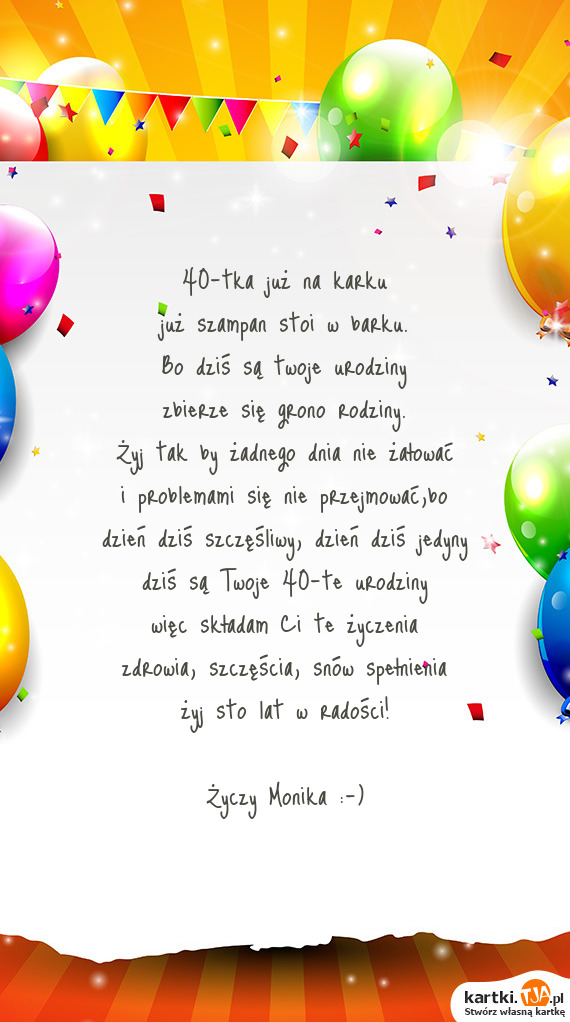 40-tka już na karku
już szampan stoi w barku.
Bo dziś są twoje urodziny
zbierze się grono rodziny.
Żyj tak by żadnego dnia nie żałować
i problemami się nie przejmować,bo
dzień dziś szczęśliwy, dzień dziś jedyny
dziś są Twoje 40-te urodziny
więc składam Ci te życzenia
zdrowia, szczęścia, snów spełnienia
żyj sto lat w radości!
Życzy Monika :-)
kartki.TJA.pl
Stwórz własną kartkę